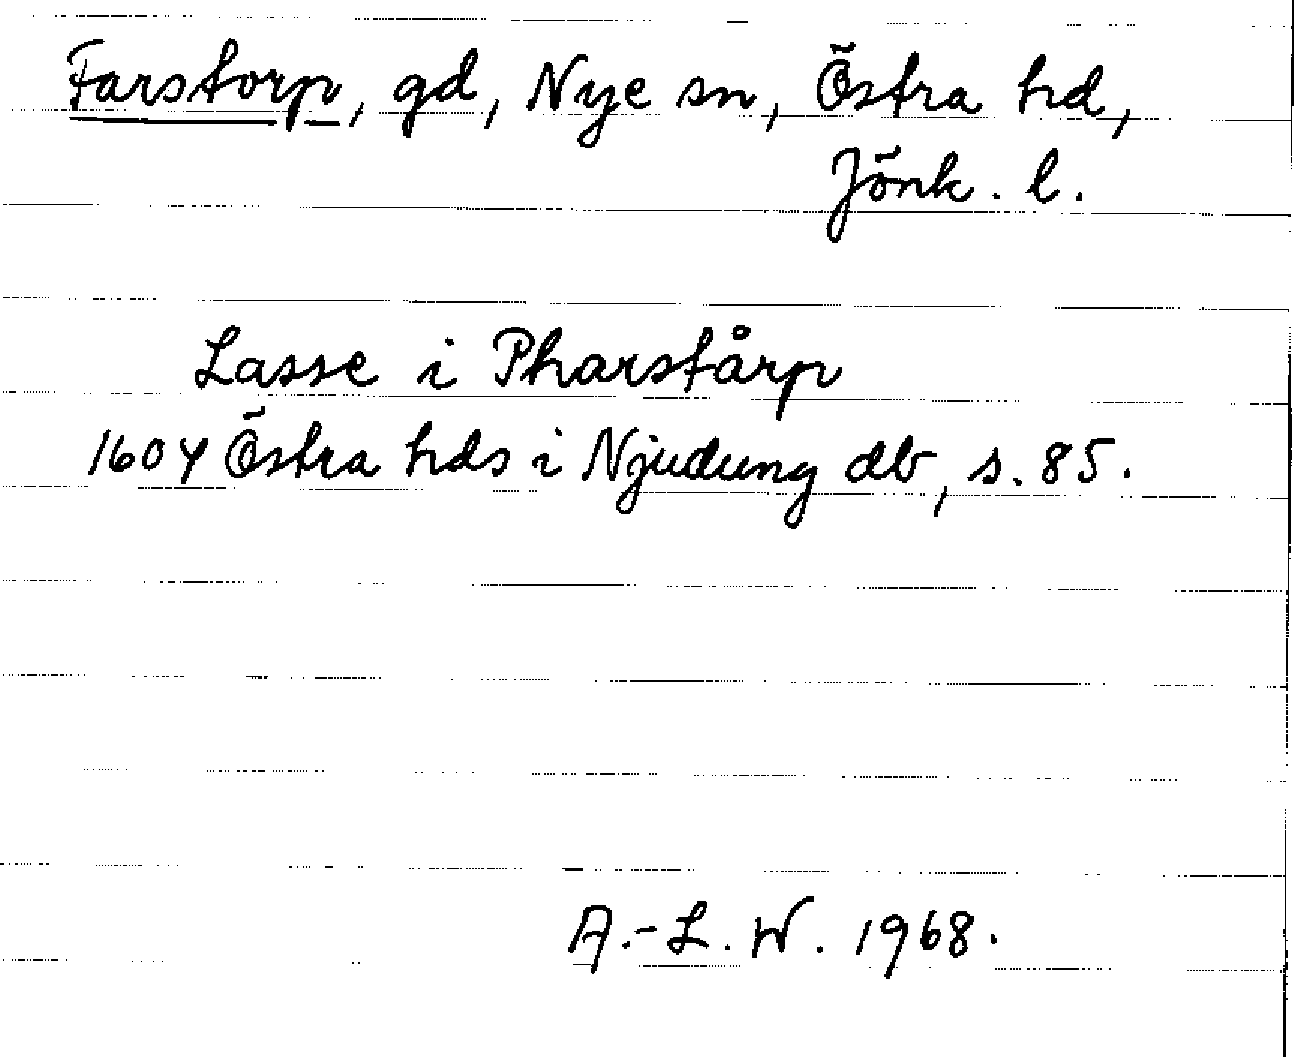 Farstorp, gd, Nye sn, Östra hd,
Jönk. l.
Lasse i Pharstårp
1604 Östra hds i Njudung db, s. 85.
A.-L. W. 1968.